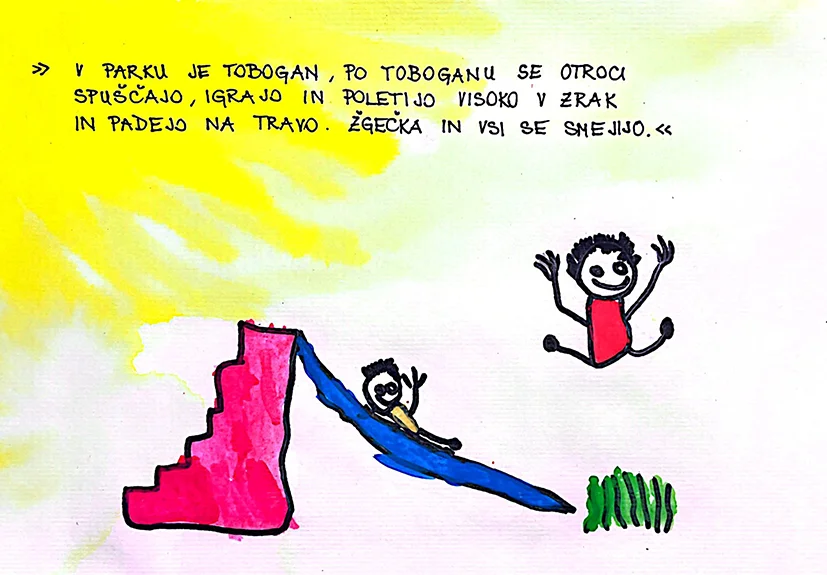 » V PARKU JE TOBOGAN, PO TOBOGANU SE OTROCI
SPUŠČAJO, IGRAJO IN POLETIJO VISOKO V ZRAK
IN PADEJO NA TRAVO. ŽGEČKA IN VSI SE SMEJIJO.«